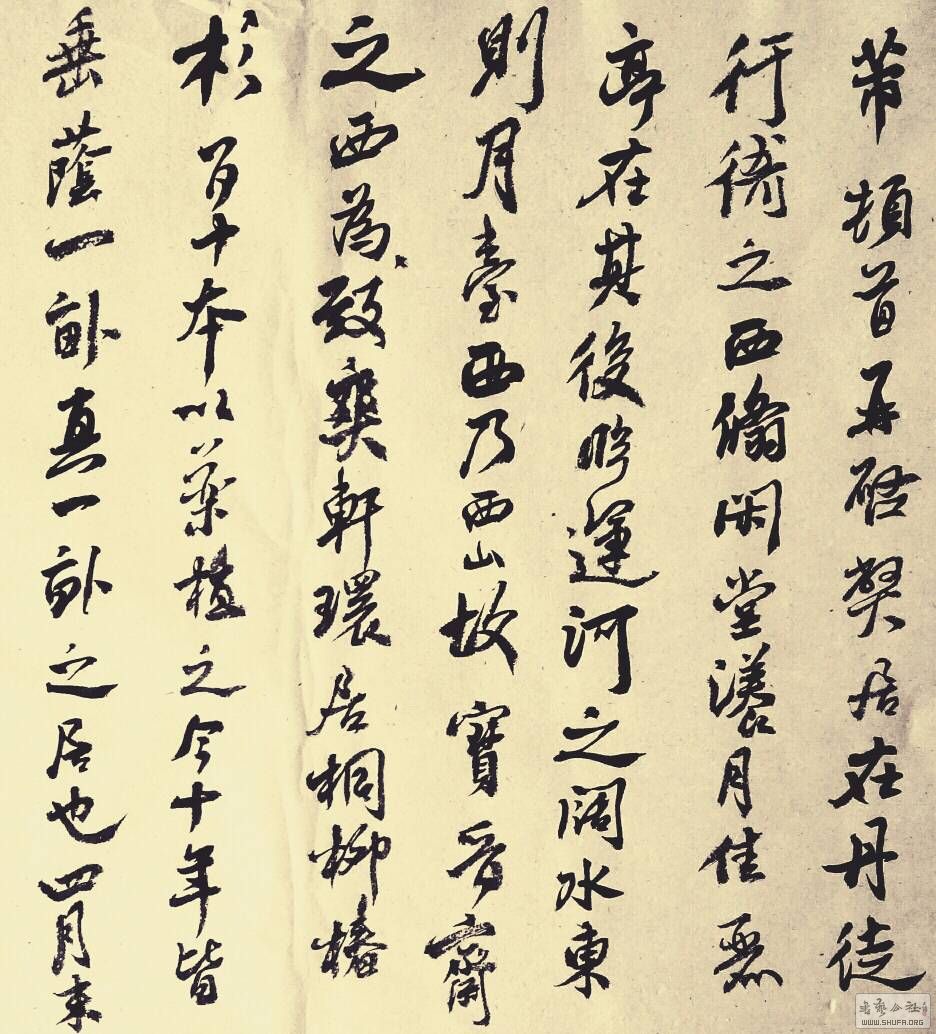 芾頓首再啓弊居在丹徒
行衙之西翛閑堂漾月佳麗
亭在其後臨運河之闊水東
則月臺西乃西山故寶晉齋
之西為致爽軒環居桐柳椿
杉百十本以藥植之今十年皆
垂蔭一畝真一畝之居也四月末
書藝公社
WWW.SHUFA.ORG